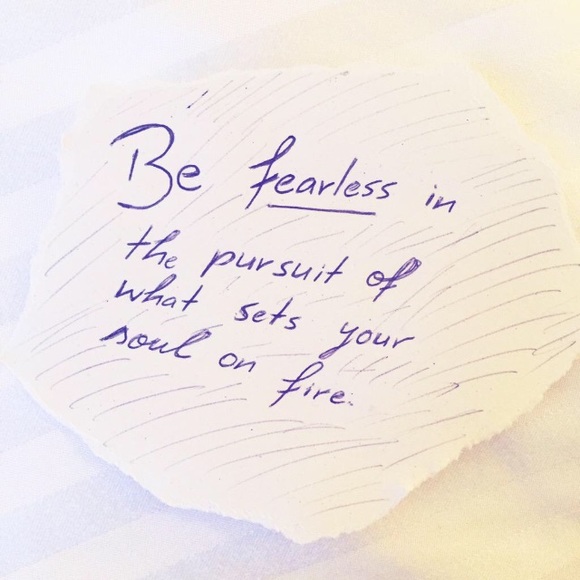 Be fearless in
the pursuit of
what sets your
soul on fire.